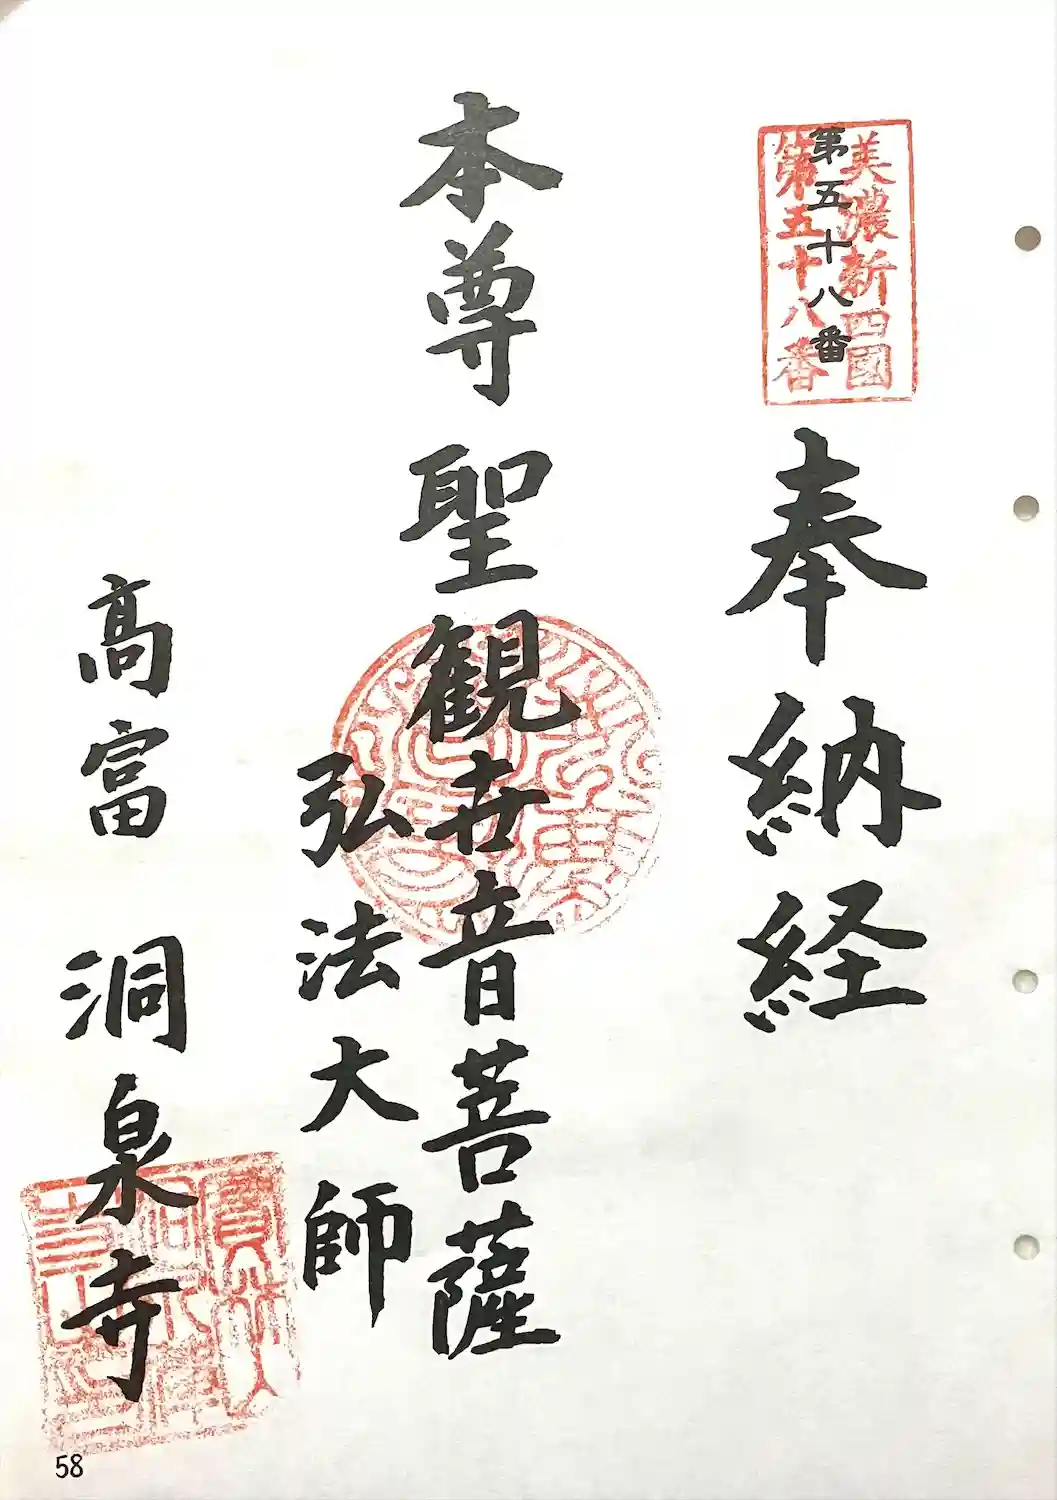 美濃新四國
第五十八番
第五十八番
奉納経
本尊 聖観世音菩薩
弘法大師
高富 洞泉寺
58